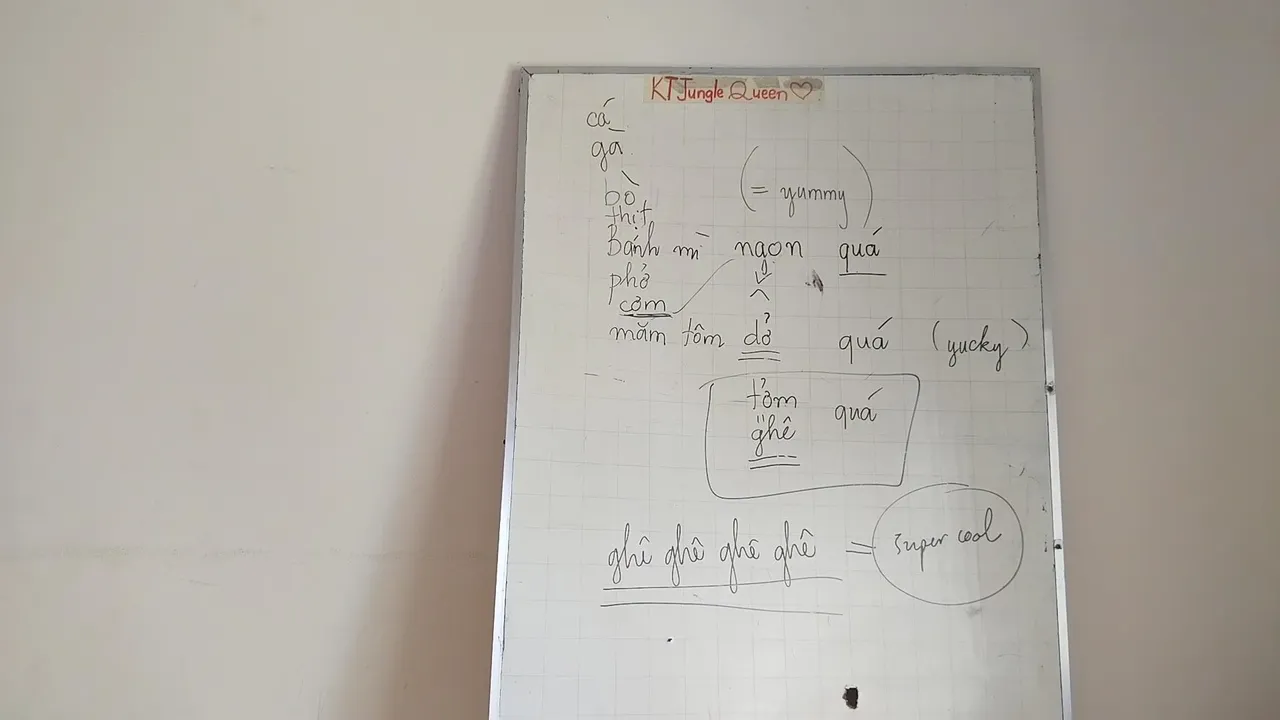 KT Jungle Queen♡
cá
gà
bò
thịt
(= yummy)
Bánh mì ngon quá
phở
cơm
mắm tôm dở quá (yucky)
tởm quá
ghê
ghê ghê ghê ghê = super cool